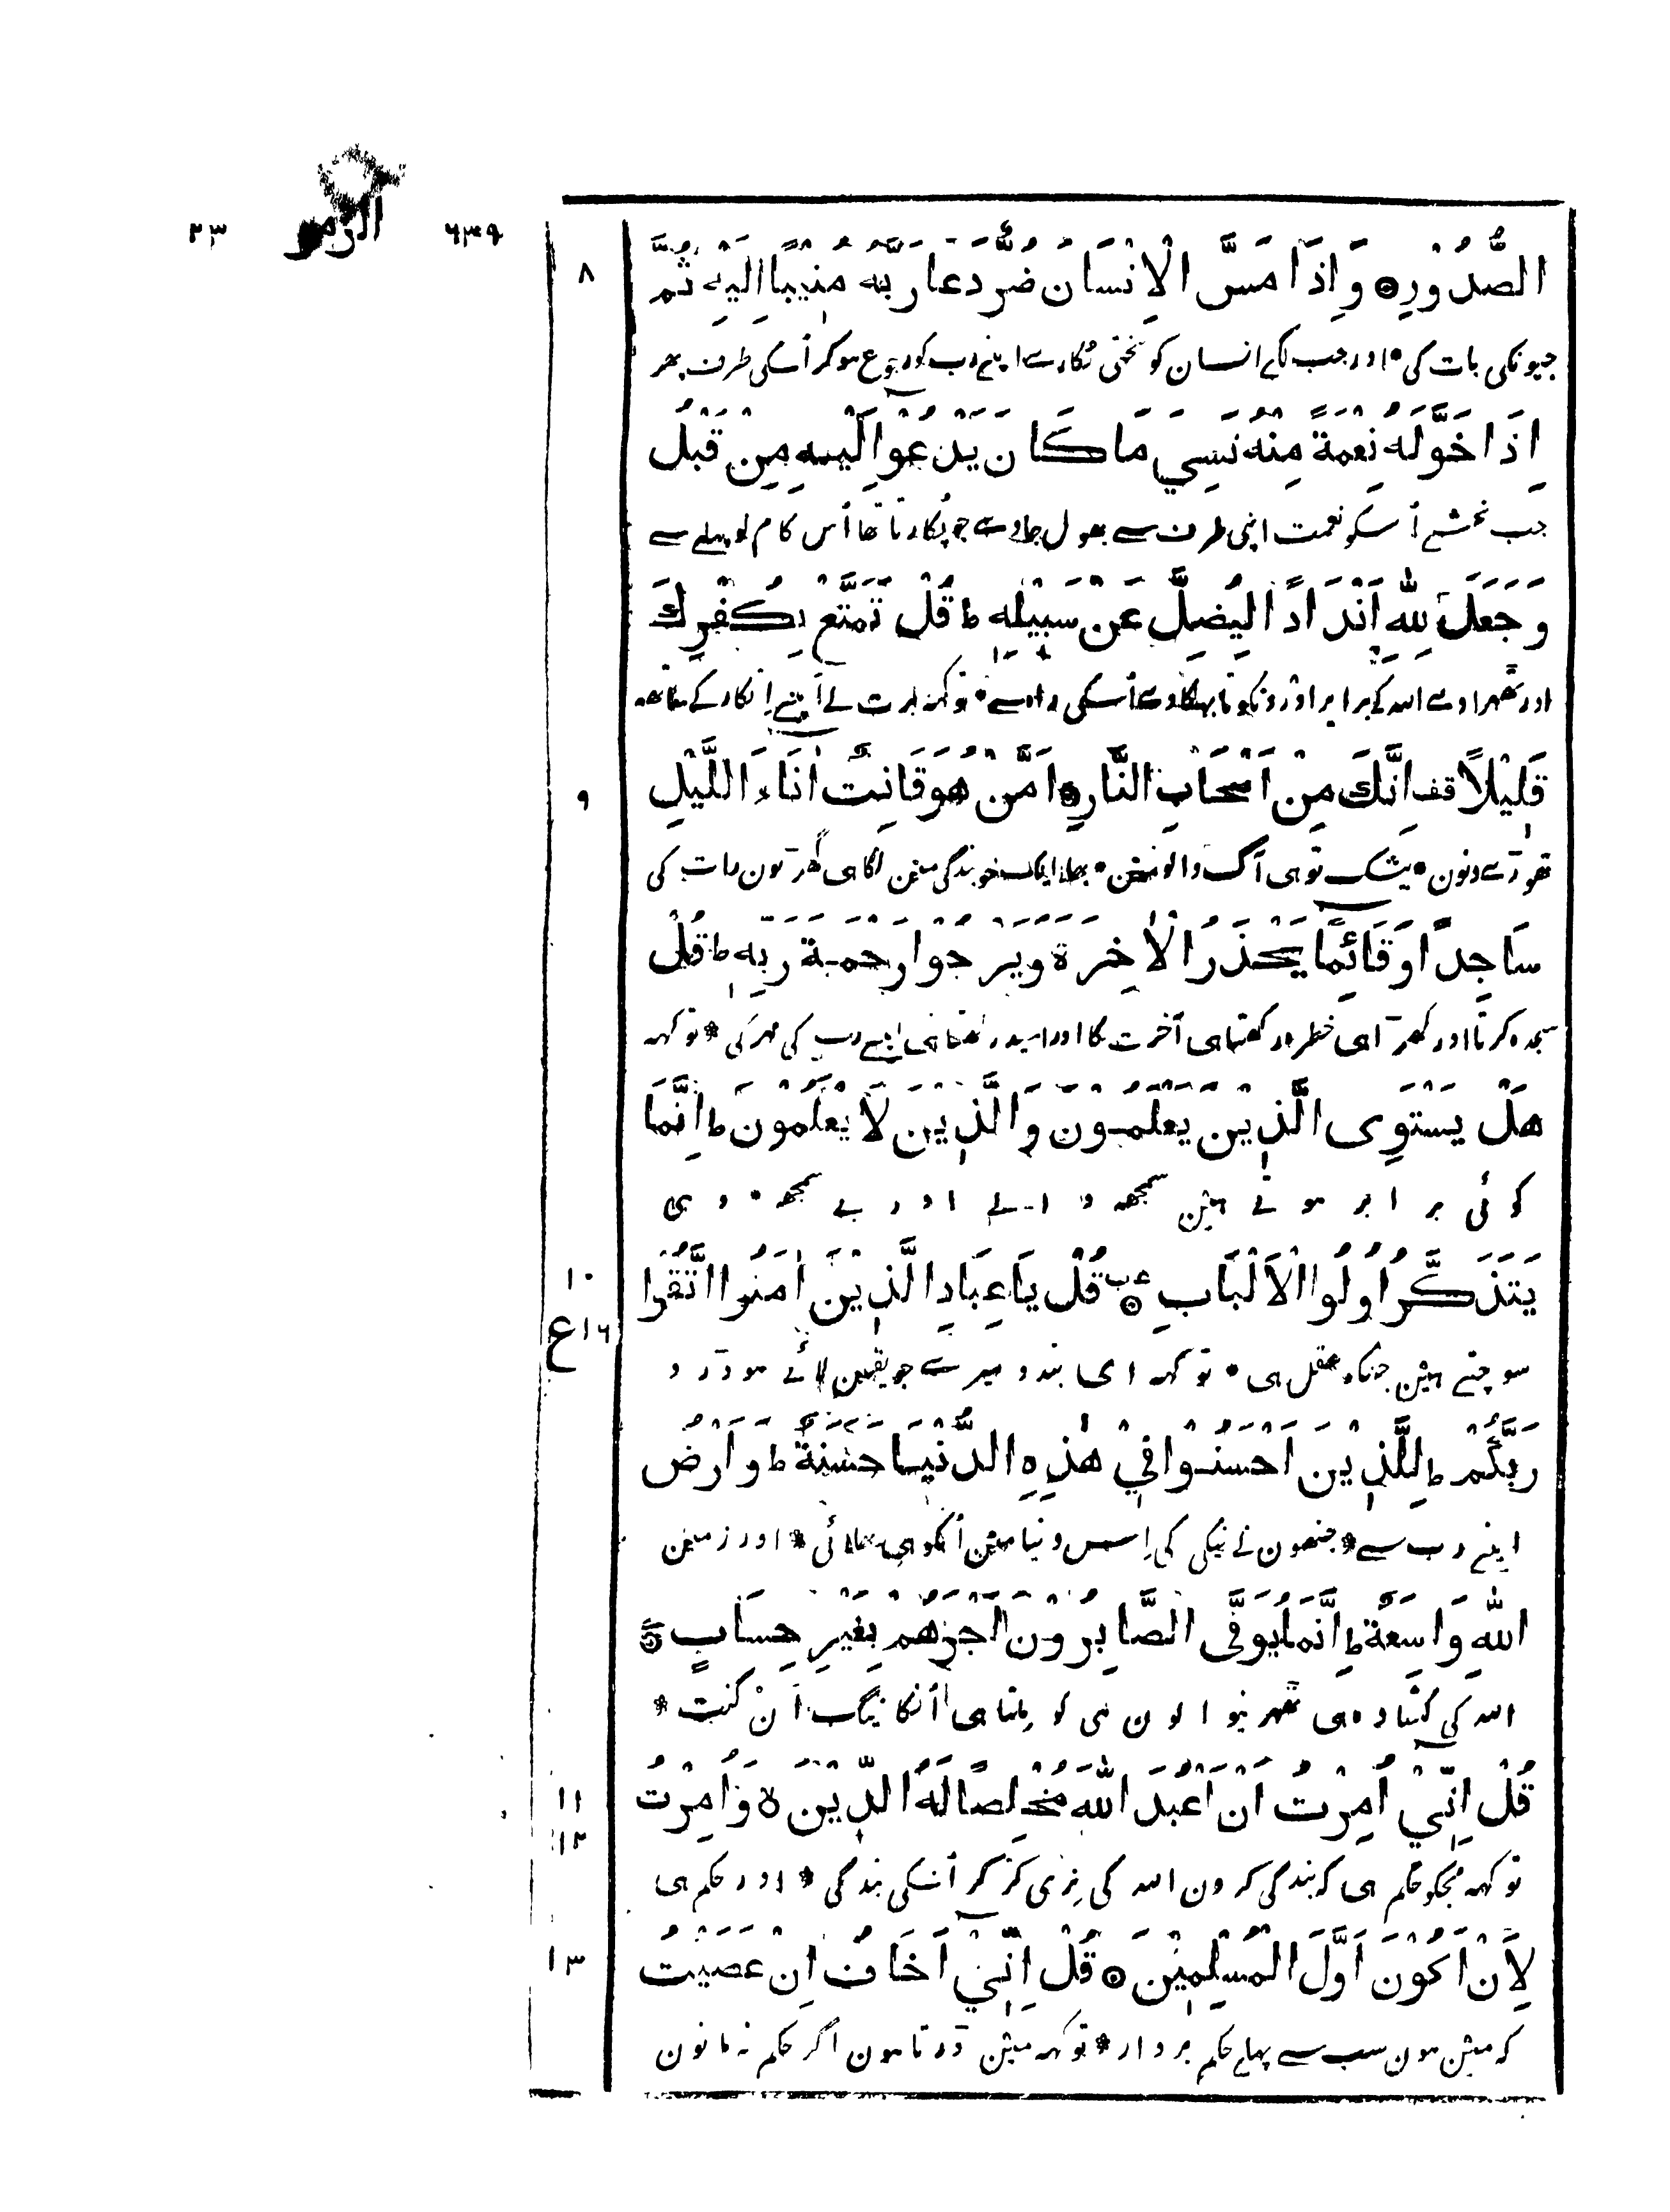 ٢٣ الزمر ٦٣٩
٨
الصُّدُوْرِ۞ وَاِذَا مَسَّ الْاِنْسَانَ ضُرٌّ دَعَا رَبَّهٗ مُنِيْبًا اِلَيْهِ ثُمَّ
جیونکی بات کی * اور جب لگے انسان کو سختی پُکارے اپنے رب کو رجوع ہوکر اُسکی طرف پھر
اِذَا خَوَّلَهٗ نِعْمَةً مِنْهُ نَسِيَ مَا كَانَ يَدْعُوْا اِلَيْهِ مِنْ قَبْلُ
جب بخشے اُسکو نعمت اپنی طرف سے بھول جاوے جو پُکارتا تھا اُس کام کو پہلے سے
وَجَعَلَ لِلّٰهِ اَنْدَادًا لِيُضِلَّ عَنْ سَبِيْلِهٖ ط قُلْ تَمَتَّعْ بِكُفْرِكَ
اور ٹھہراوے اللہ کے برابر اوروںکو تا بہکاوے اُسکی راہ سے * تو کہہ برت لے اپنے اِنکار کے ساتھہ
٩
قَلِيْلًا قف اِنَّكَ مِنْ اَصْحَابِ النَّارِ۞ اَمَّنْ هُوَ قَانِتٌ اٰنَاءَ اللَّيْلِ
تھوڑے دنون * بیشک تو ہی آگ والونمین * بھلا ایک جو بندگی مین لگا ہی گھڑیون رات کی
سَاجِدًا وَقَائِمًا يَحْذَرُ الْاٰخِرَةَ وَيَرْجُوْا رَحْمَةَ رَبِّهٖ ط قُلْ
سجدہ کرتا اور کھڑا ہی خطرہ رکھتا ہی آخرت کا اور امید رکھتا ہی اپنے رب کی مہر کی * تو کہہ
هَلْ يَسْتَوِى الَّذِيْنَ يَعْلَمُوْنَ وَالَّذِيْنَ لَا يَعْلَمُوْنَ ط اِنَّمَا
کوئی برابر ہوتے ہین سمجھہ والے اور بے سمجھہ * وہی
١٠
ع ١٦
يَتَذَكَّرُ اُولُوا الْاَلْبَابِ۞ قُلْ يَا عِبَادِ الَّذِيْنَ اٰمَنُوا اتَّقُوْا
سوچتے ہین جنکو عقل ہی * تو کہہ ای بندو میرے جو یقین لائے ہو ڈرو
رَبَّكُمْ ط لِلَّذِيْنَ اَحْسَنُوْا فِيْ هٰذِهِ الدُّنْيَا حَسَنَةٌ ط وَاَرْضُ
اپنے رب سے * جنھون نے نیکی کی اِس دنیا مین اُنکو ہی بھلائی * اور زمین
اللّٰهِ وَاسِعَةٌ ط اِنَّمَا يُوَفَّى الصَّابِرُوْنَ اَجْرَهُمْ بِغَيْرِ حِسَابٍ۞
اللہ کی کشادہ ہی ٹھہرنیوالون ہی کو ملتا ہی اُنکا نیگ اَن گنت *
١١
١٢
قُلْ اِنِّيْ اُمِرْتُ اَنْ اَعْبُدَ اللّٰهَ مُخْلِصًا لَهُ الدِّيْنَ ۙ وَاُمِرْتُ
تو کہہ مجکو حکم ہی کہ بندگی کرون اللہ کی نِری کر کر اُسکی بندگی * اور حکم ہی
١٣
لِاَنْ اَكُوْنَ اَوَّلَ الْمُسْلِمِيْنَ ۞ قُلْ اِنِّيْ اَخَافُ اِنْ عَصَيْتُ
کہ مین ہون سب سے پہلے حکم بردار * تو کہہ مین ڈرتا ہون اگر حکم نہ مانون